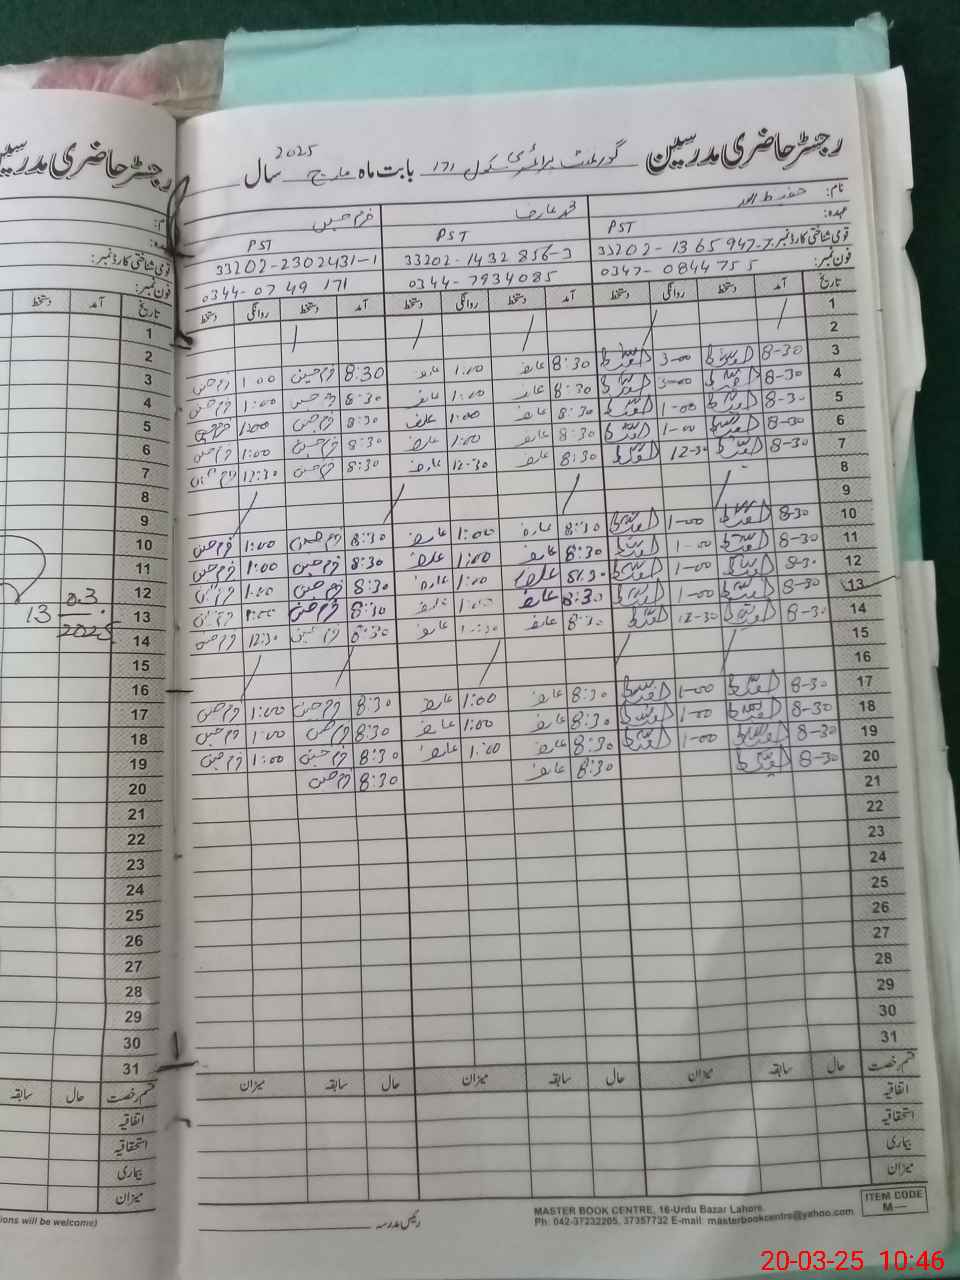 رجسٹر حاضری مدرسین
رجسٹر حاضری مدرسین گورنمنٹ پرائمری سکول 171 بابت ماہ مارچ سال 2025
نام: حفیظ اللہ محمد عارف خرم حسین
عہدہ: PST PST PST
قومی شناختی کارڈ نمبر: 33202-1365947-7 33202-1432856-3 33202-2302431-1
فون نمبر: 0347-0844755 0344-7934085 0344-0749171
تاریخ آمد دستخط روانگی دستخط آمد دستخط روانگی دستخط آمد دستخط روانگی دستخط
1
2
3 8-30 3-00 8:30 عارف 1:00 عارف 8:30 خرم حسین 1:00 خرم حسین
4 8-30 3-00 8:30 عارف 1:00 عارف 8:30 خرم حسین 1:00 خرم حسین
5 8-30 1-00 8:30 عارف 1:00 عارف 8:30 خرم حسین 1:00 خرم حسین
6 8-30 1-00 8:30 عارف 1:00 عارف 8:30 خرم حسین 1:00 خرم حسین
7 8-30 12-30 8:30 عارف 12-30 عارف 8:30 خرم حسین 12:30 خرم حسین
8
9
10 8-30 1-00 8:30 عارف 1:00 عارف 8:30 خرم حسین 1:00 خرم حسین
11 8-30 1-00 8:30 عارف 1:00 عارف 8:30 خرم حسین 1:00 خرم حسین
12 8-30 1-00 8:30 عارف 1:00 عارف 8:30 خرم حسین 1:00 خرم حسین
13 8-30 1-00 8:30 عارف 1:00 عارف 8:30 خرم حسین 1:00 خرم حسین
14 8-30 12-30 8:30 عارف 12:30 عارف 8:30 خرم حسین 12:30 خرم حسین
15
16
17 8-30 1-00 8:30 عارف 1:00 عارف 8:30 خرم حسین 1:00 خرم حسین
18 8-30 1-00 8:30 عارف 1:00 عارف 8:30 خرم حسین 1:00 خرم حسین
19 8-30 1-00 8:30 عارف 1:00 عارف 8:30 خرم حسین 1:00 خرم حسین
20 8-30 8:30 عارف 8:30 خرم حسین
21
22
23
24
25
26
27
28
29
30
31
قسم رخصت حال سابقہ میزان حال سابقہ میزان حال سابقہ میزان
اتفاقیہ
استحقاقیہ
بیماری
میزان
رئیس مدرسہ
MASTER BOOK CENTRE, 16-Urdu Bazar Lahore.
Ph: 042-37232205, 37357732 E-mail: masterbookcentre@yahoo.com
ITEM CODE
M—
قومی شناختی کارڈ نمبر:
فون نمبر:
تاریخ آمد دستخط
1
2
3
4
5
6
7
8
9
10
11
12
13
14
15
16
17
18
19
20
21
22
23
24
25
26
27
28
29
30
31
13 03.
2025
قسم رخصت حال سابقہ
اتفاقیہ
استحقاقیہ
بیماری
میزان
ions will be welcome)
20-03-25 10:46